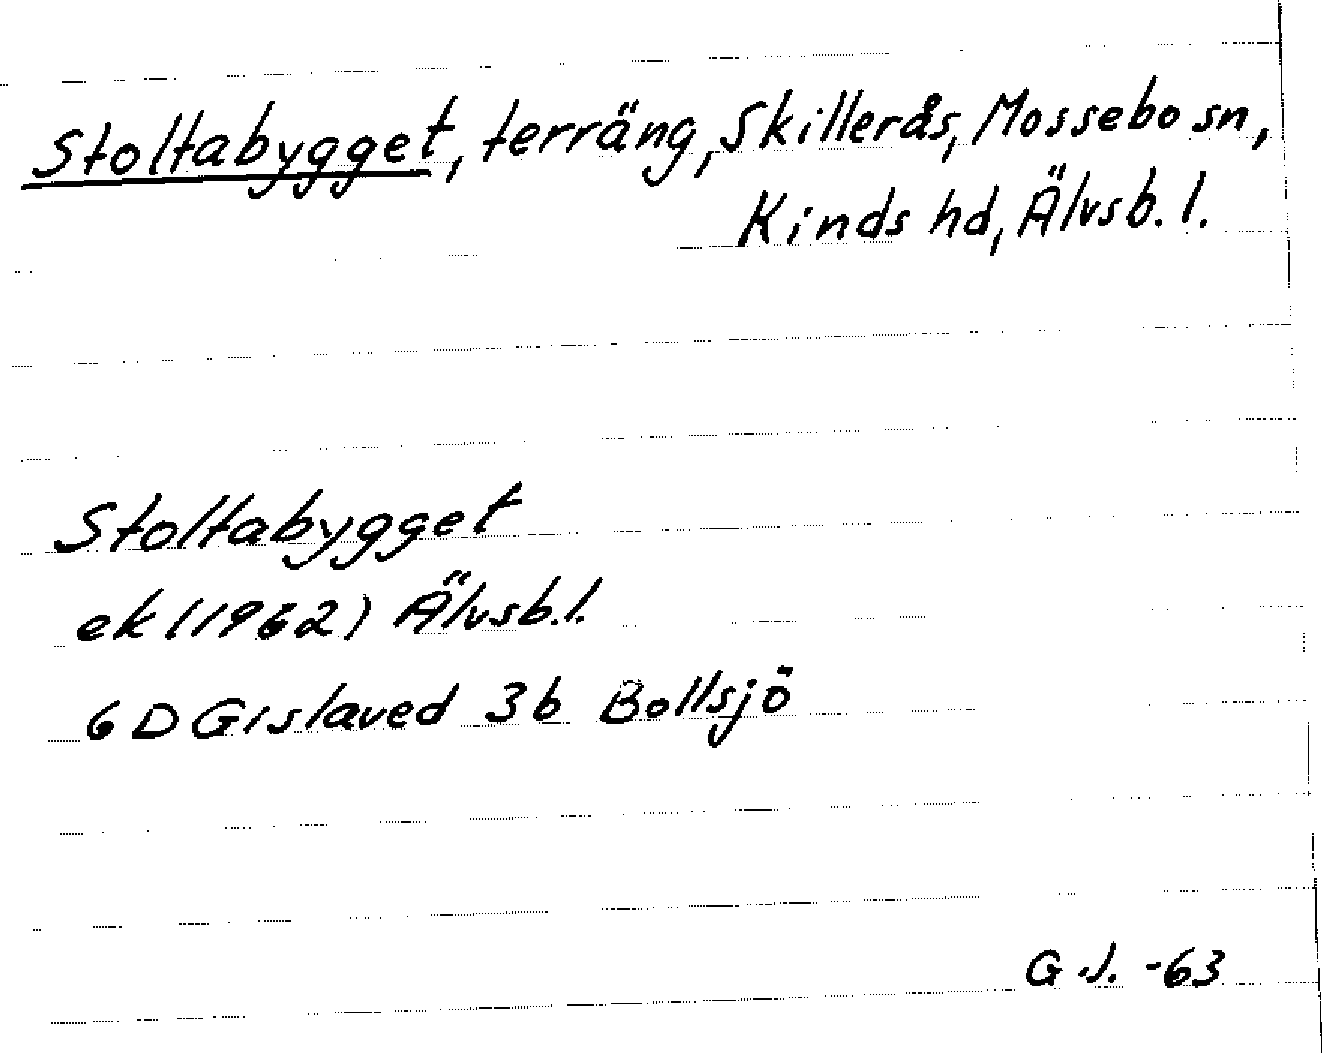 Stoltabygget, terräng, Skillerås, Mossebo sn,
Kinds hd, Älvsb. l.
Stoltabygget
ek (1962) Älvsb. l.
6 D Gislaved 3 b Bollsjö
G.J. -63